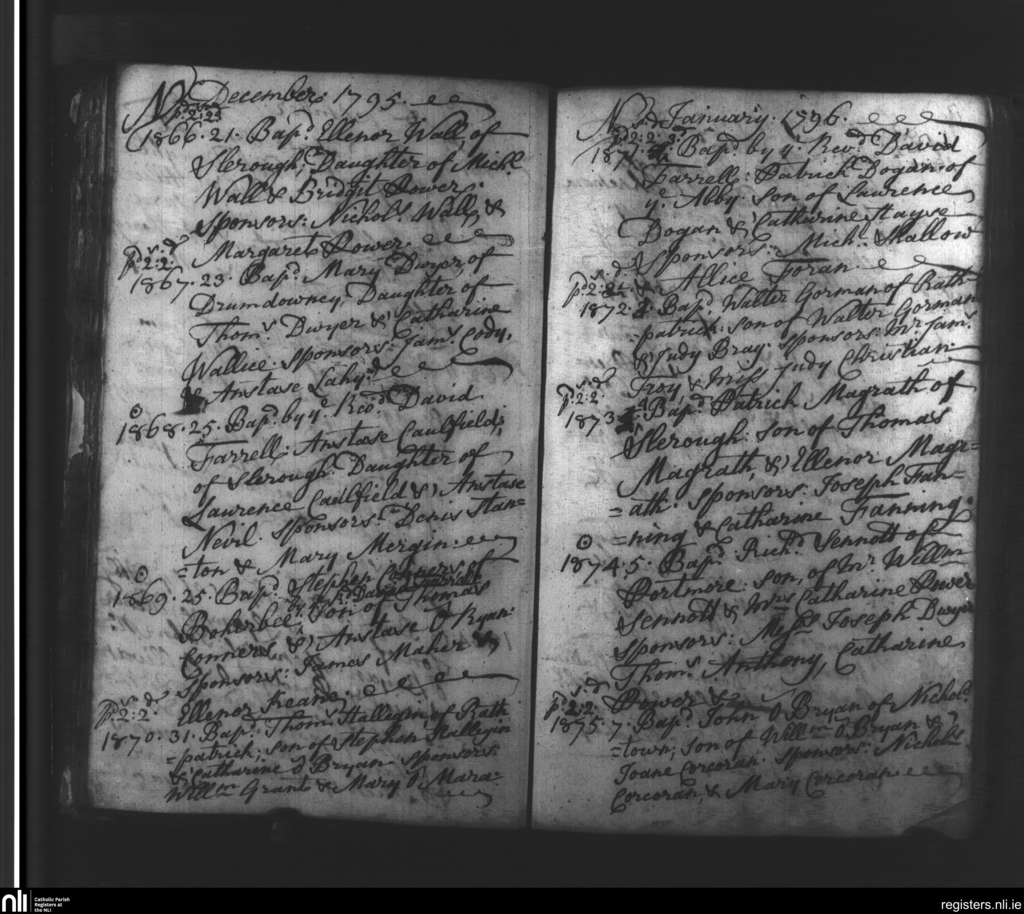 No. December 1795.
p:2:2:
1866. 21. Bap:d Ellenor Wall, of
Slerough; Daughter of Mich:l
Wall & Bridgit Power.
Sponsors: Nichol:s Wall, &
Margaret Power.
s. d.
p:2:2:
1867. 23. Bap:d Mary Dwyer, of
Drumdowney. Daughter of
Thom:s Dwyer & Catharine
Wallice. Sponsors: Jam:s Cody,
& Anstase Lahy.
1868. 25. Bap:d by y:e Rev:d David
Farrell: Anstase Caulfield;
of Slerough. Daughter of
Lawrence Caulfield & Anstase
Nevil. Sponsors: Denis Stan=
=ton & Mary Mergin.
1869. 25. Bap:d Stephen Conners, of
by Rev:d David Farrell
Boherbee; Son of Thomas
Conners, & Anstase O Ryan:
Sponsors: James Maher &
Ellenor Keane.
s. d.
p:2:2:
1870. 31. Bap: Thom:s Hallegin of Rath
=patrick: son of Stephen Hallegin
& Catharine O Bryan. Sponsors:
Will:m Grant & Mary O Mara=
No. January. 1796.
p:2:2:
1871. Bap:d by y:e Rev:d David
Farrell: Patrick Dogan of
y:e Abby: son of Lawrence
Dogan & Catharine Hayse
Sponsors: Mich: Mallow
& Allice Foran.
s. d.
p:2:2:
1872. Bap:d Walter Gorman of Rath
=patrick: son of Walter Gorman
& Judy Bray. Sponsors: Mr: Jam:s
Troy & Miss Judy Christian.
s. d.
p:2:2:
1873 Bap:d Patrick Magrath of
Slerough: son of Thomas
Magrath, & Ellenor Magr=
=ath. Sponsors: Joseph Fan=
=ning & Catharine Fanning.
1874. 5. Bap:d Rich:d Sennott of
Portmore: son, of Mr: Will:m
Sennott & Mrs Catharine Power
Sponsors: Mess:rs Joseph Dwyer
Thom:s Anthony, Catharine
Power &
s. d.
p:2:2:
1875. 7. Bap:d John O Bryan of Nichol:s
=town; son of Will:m O Bryan &
Joane Corcoran. Sponsors: Nichols
Corcoran, & Mary Corcoran.
nli
Catholic Parish
Registers at
the NLI
registers.nli.ie